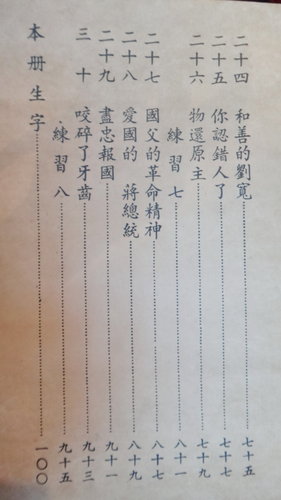 二十四 和善的劉寬 七十五
二十五 你認錯人了 七十七
二十六 物還原主 七十九
練習七 八十一
二十七 國父的革命精神 八十七
二十八 愛國的 蔣總統 八十九
二十九 盡忠報國 九十一
三十 咬碎了牙齒 九十三
練習八 九十五
本册生字 一〇〇